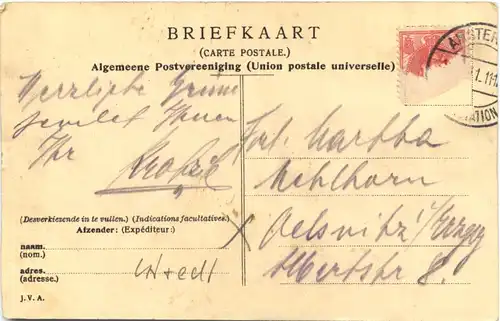 BRIEFKAART
(CARTE POSTALE.)
Algemeene Postvereeniging (Union postale universelle)
AMSTER
1.11-1
STATION
Herzliche Grüsse
sendet Ihnen
Ihr
Frl. Martha
Mehlhorn
Oelsnitz i/Erzgeb
Albertstr 8.
(Desverkiezende in te vullen.) (Indications facultatives.)
Afzender: (Expéditeur:)
naam.
(nom.)
adres.
(adresse.)
J. V. A.